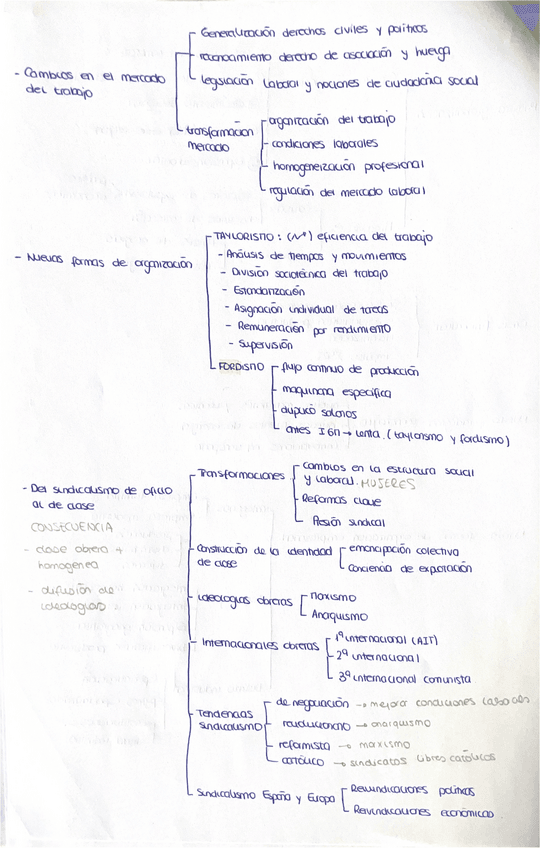 Generalización derechos civiles y políticos
reconocimiento derecho de asociación y huelga
- Cambios en el mercado del trabajo
legislación laboral y nociones de ciudadanía social
transformación mercado
organización del trabajo
- condiciones laborales
- homogeneización profesional
regulación del mercado laboral
- Nuevas formas de organización
TAYLORISMO: (Nº) eficiencia del trabajo
- Análisis de tiempos y movimientos
- División sociotécnica del trabajo
- Estandarización
- Asignación individual de tareas
- Remuneración por rendimiento
- Supervisión
FORDISMO
flujo continuo de producción
- maquinaria específica
- duplicó salarios
antes IGM → lenta. (taylorismo y fordismo)
- Del sindicalismo de oficio al de clase
CONSECUENCIA
- clase obrera + homogenea
- difusión de ideologías
Transformaciones
Cambios en la estructura social y laboral. MUJERES
- Reformas clave
- Presión sindical
Construcción de la identidad de clase
emancipación colectiva
conciencia de explotación
Ideologías obreras
Marxismo
Anarquismo
Internacionales obreras
1ª internacional (AIT)
2ª internacional
3ª internacional comunista
Tendencias sindicalismo
de negociación → mejorar condiciones laborales
revolucionario → anarquismo
reformista → marxismo
católico → sindicatos libres católicos
Sindicalismo España y Europa
Reivindicaciones políticas
Reivindicaciones económicas.